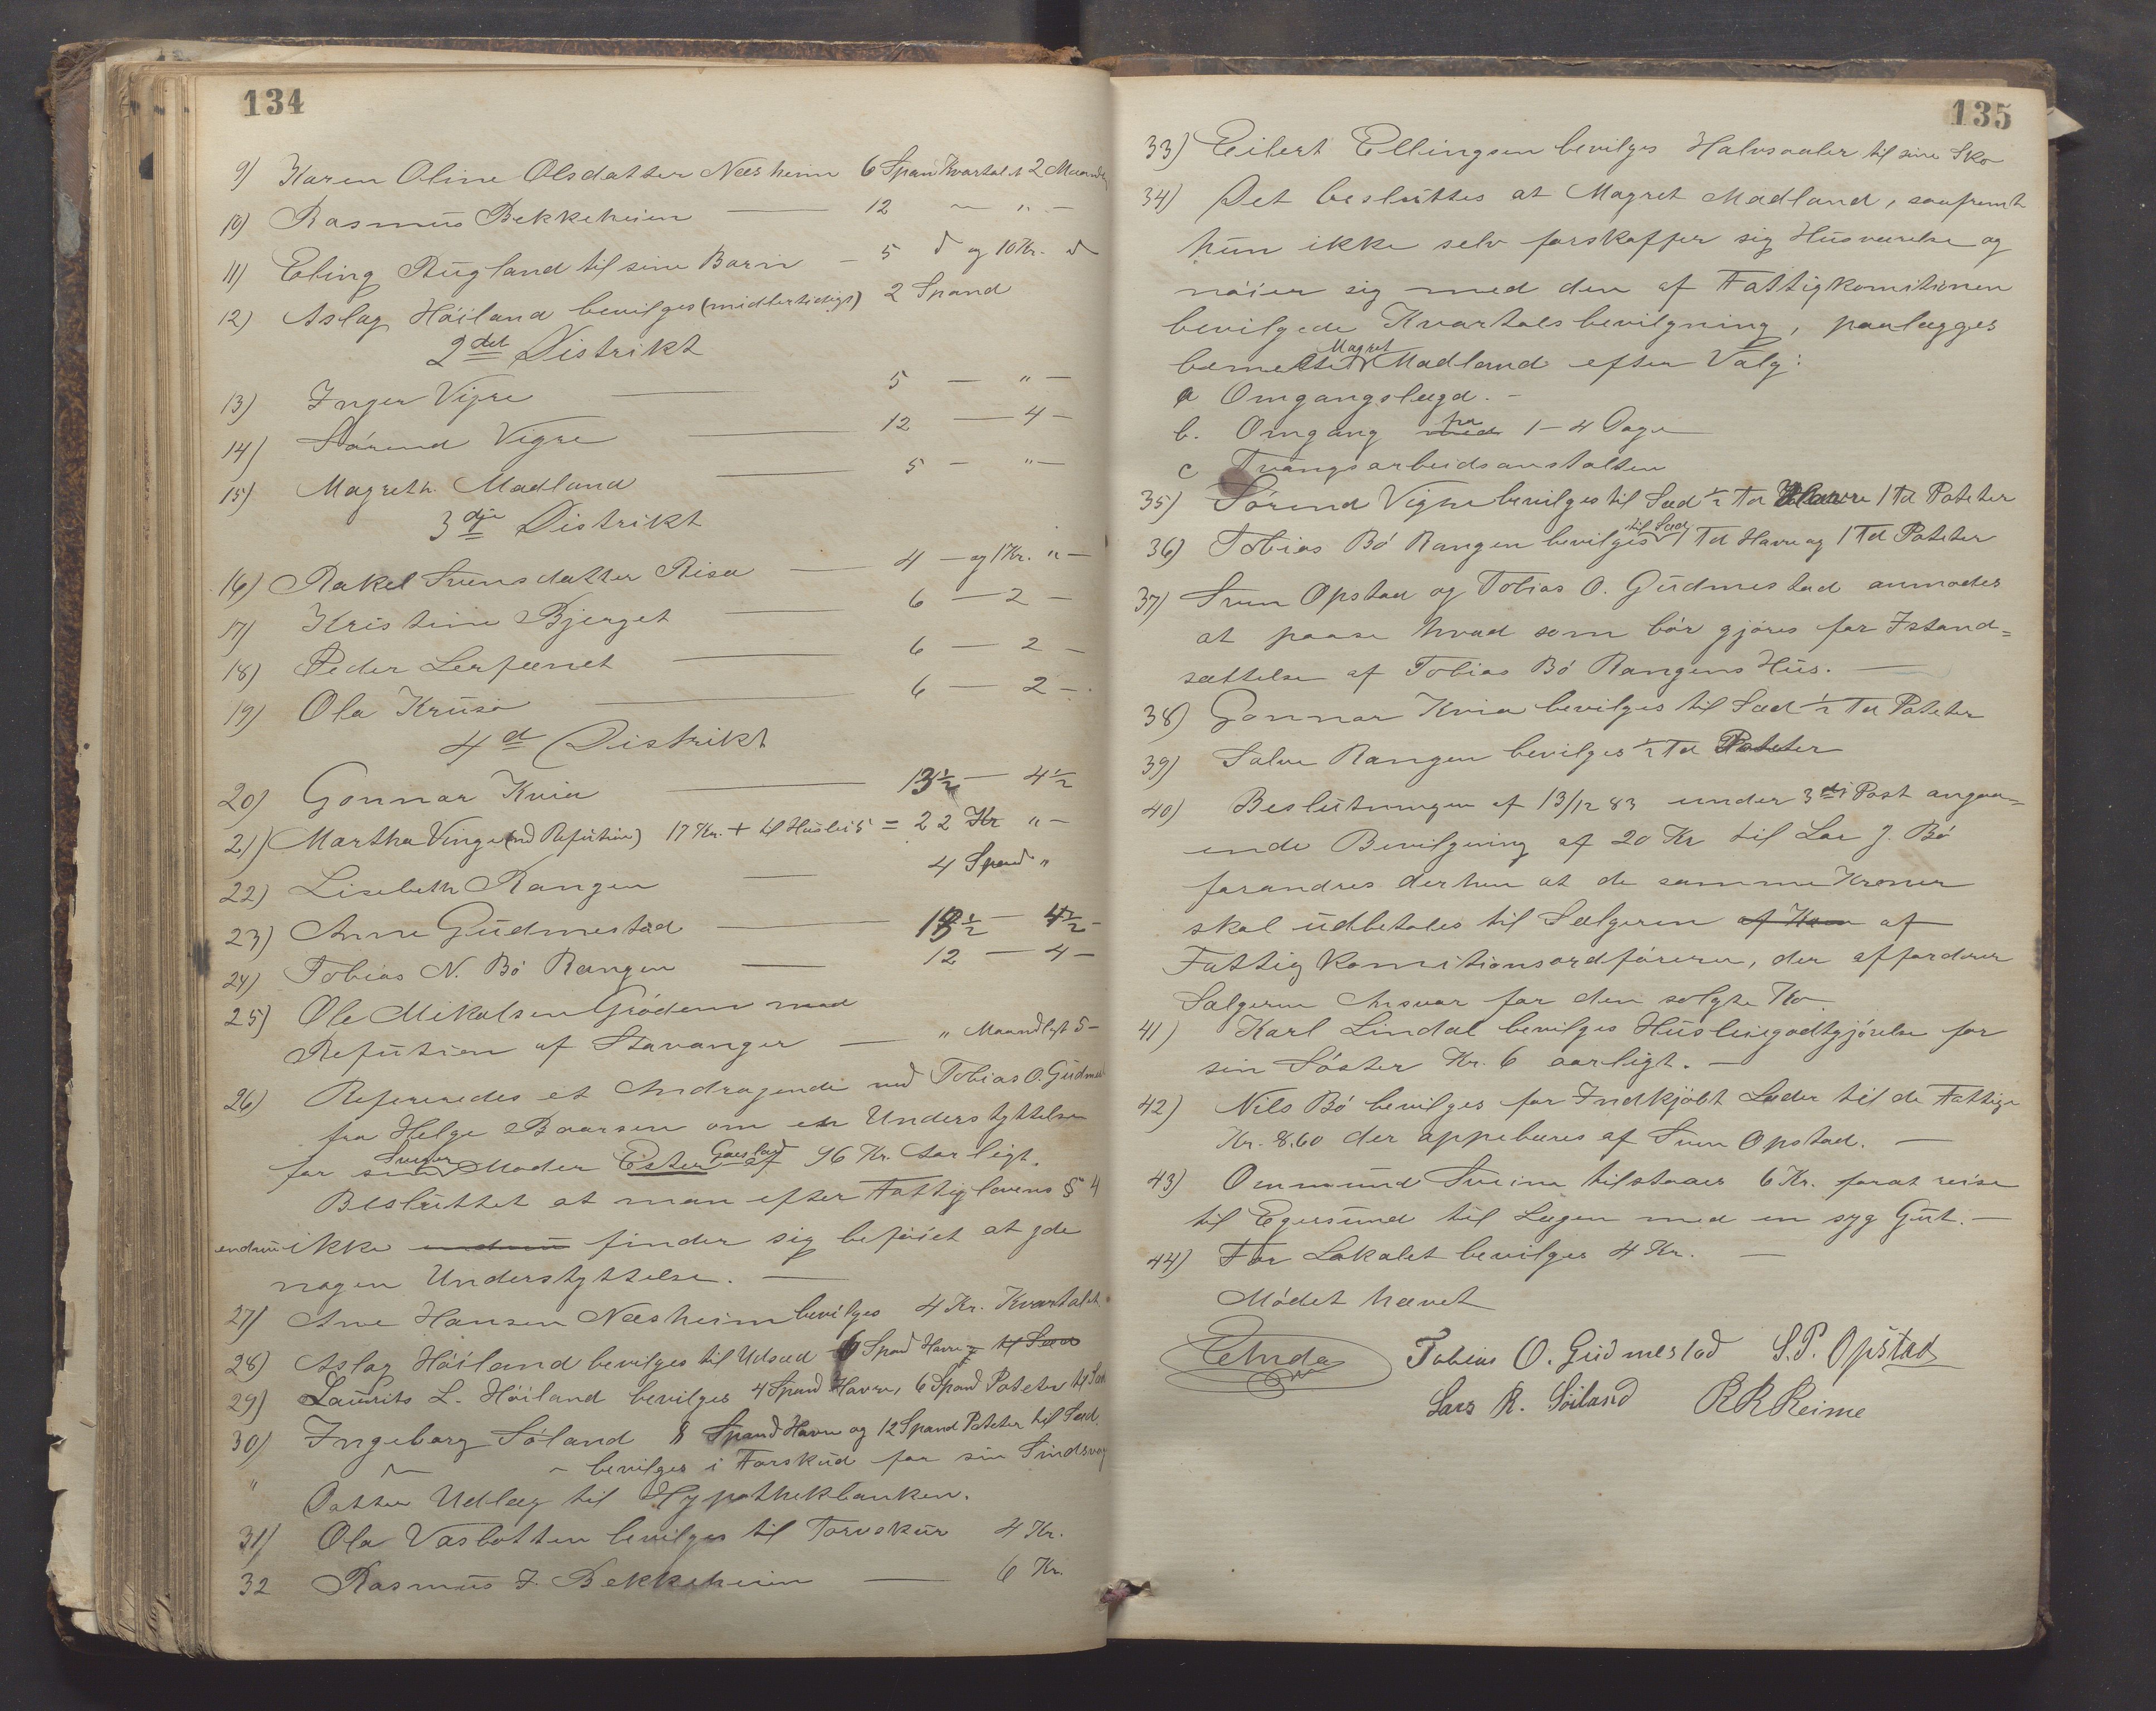 134
9) Karen Oline Olsdatter Næsheim 6 Spand Kvartalet 2 Maaneder
10) Rasmus Bekkeheien — 12 ~ „ —
11) Eling Rugland til sine Børn — 5 d og 10 Kr. d
12) Aslag Höiland bevilges (midlertidigt) 2 Spand
2det Distrikt
13) Inger Vigre — 5 — „ —
14) Sörend Vigre — 12 — 4 —
15) Magreth Madland — 5 — „ —
3dje Distrikt
16) Rakel Svensdatter Risa — 4 — og 1 Kr. „ —
17) Kristine Bjerget — 6 — 2 —
18) Peder Lerfænet — 6 — 2 —
19) Ola Krusö — 6 — 2 —
4d Distrikt
20) Gonnar Kvia — 13 1/2 — 4 1/2
21) Martha Vinge (md Refusion) 17 Kr. + til Huslei 5 = 22 Kr „ —
22) Lisebeth Rangen — 4 Spand „
23) Anne Gudmestad — 13 1/2 — 4 1/2 —
24) Tobias N. Bö Rangen — 12 — 4 —
25) Ole Mikalsen Grödem mod
Refusion af Stavanger — „ Maandligt 5 —
26) Refereredes et Andragende ved Tobias O. Gudmest
fra Helge Baarsen om en Understyttelse
for sin Sviger Moder Ester Gaesland af 96 Kr. Aarligt.
Besluttet at man efter Fattiglovens § 4
endnu ikke endnu finder sig beföiet at yde
nogen Understyttelse. —
27) Ane Hansen Næsheim bevilges 4 Kr. Kvartalet „
28) Aslag Höiland bevilges til Udsæd 6 Spand Havre til Sæd
29) Laurits L. Höiland bevilges 4 Spand Havre, 6 Spand Poteter til Sæd
30) Ingeborg Söland 8 Spand Havre og 12 Spand Poteter til Sæd.
„ ~ ~ bevilges i Forskud for sin Sindsvag
Datter Udlæg til Hypothekbanken.
31) Ola Vasbotten bevilges til Torvskur 4 Kr.
32 Rasmus J. Bekkeheien — 6 Kr.
135
33) Eilert Ellingsen bevilges Halvsaaler til sine Sko
34) Det besluttes at Magret Madland, saafremt
hun ikke selv forskaffer sig Husværelse og
nöier sig med den af Fattigkomitionen
bevilgede Kvartalsbevilgning, paalægges
bemeldte Magret Madland efter Valg:
a Omgangslægd. —
b. Omgang med fra 1–4 Dage
c Tvangsarbeidsanstalten
35) Sörend Vigre bevilges til Sæd 1/2 Td Havre 1 Td Poteter
36) Tobias Bö Rangen bevilges til Sæd 1 Td Havre og 1 Td Poteter
37) Sven Opstad og Tobias O. Gudmestad anmodes
at paase hvad som bör gjöres for Istand=
sættelse af Tobias Bö Rangens Hus. —
38) Gonnar Kvia bevilges til Sæd 1/2 Td Poteter
39) Salve Rangen bevilges 1/2 Td Poteter
40) Beslutningen af 13/12 83 under 3di Post angaa=
ende Bevilgning af 20 Kr til Lar J. Bö
forandres derhen at de samme Kroner
skal udbetales til Sælgeren af Kom af
Fattigkomitionsordföreren, der affordrer
Sælgeren Ansvar for den solgte Ko
41) Karl Lindal bevilges Husleiegodtgjörelse for
sin Söster Kr. 6 aarligt. —
42) Nils Bö bevilges for Indkjöbt Læder til de Fattige
Kr. 8.60 der oppebæres af Sven Opstad. —
43) Ommund Sveine tilstaaes 6 Kr. forat reise
til Egersund til Lægen med en syg Gut. —
44) For Lokalet bevilges 4 Kr. —
Mödet hævet
Tobias O. Gudmestad S. P. Opstad
Lars R. Söiland R R Reime